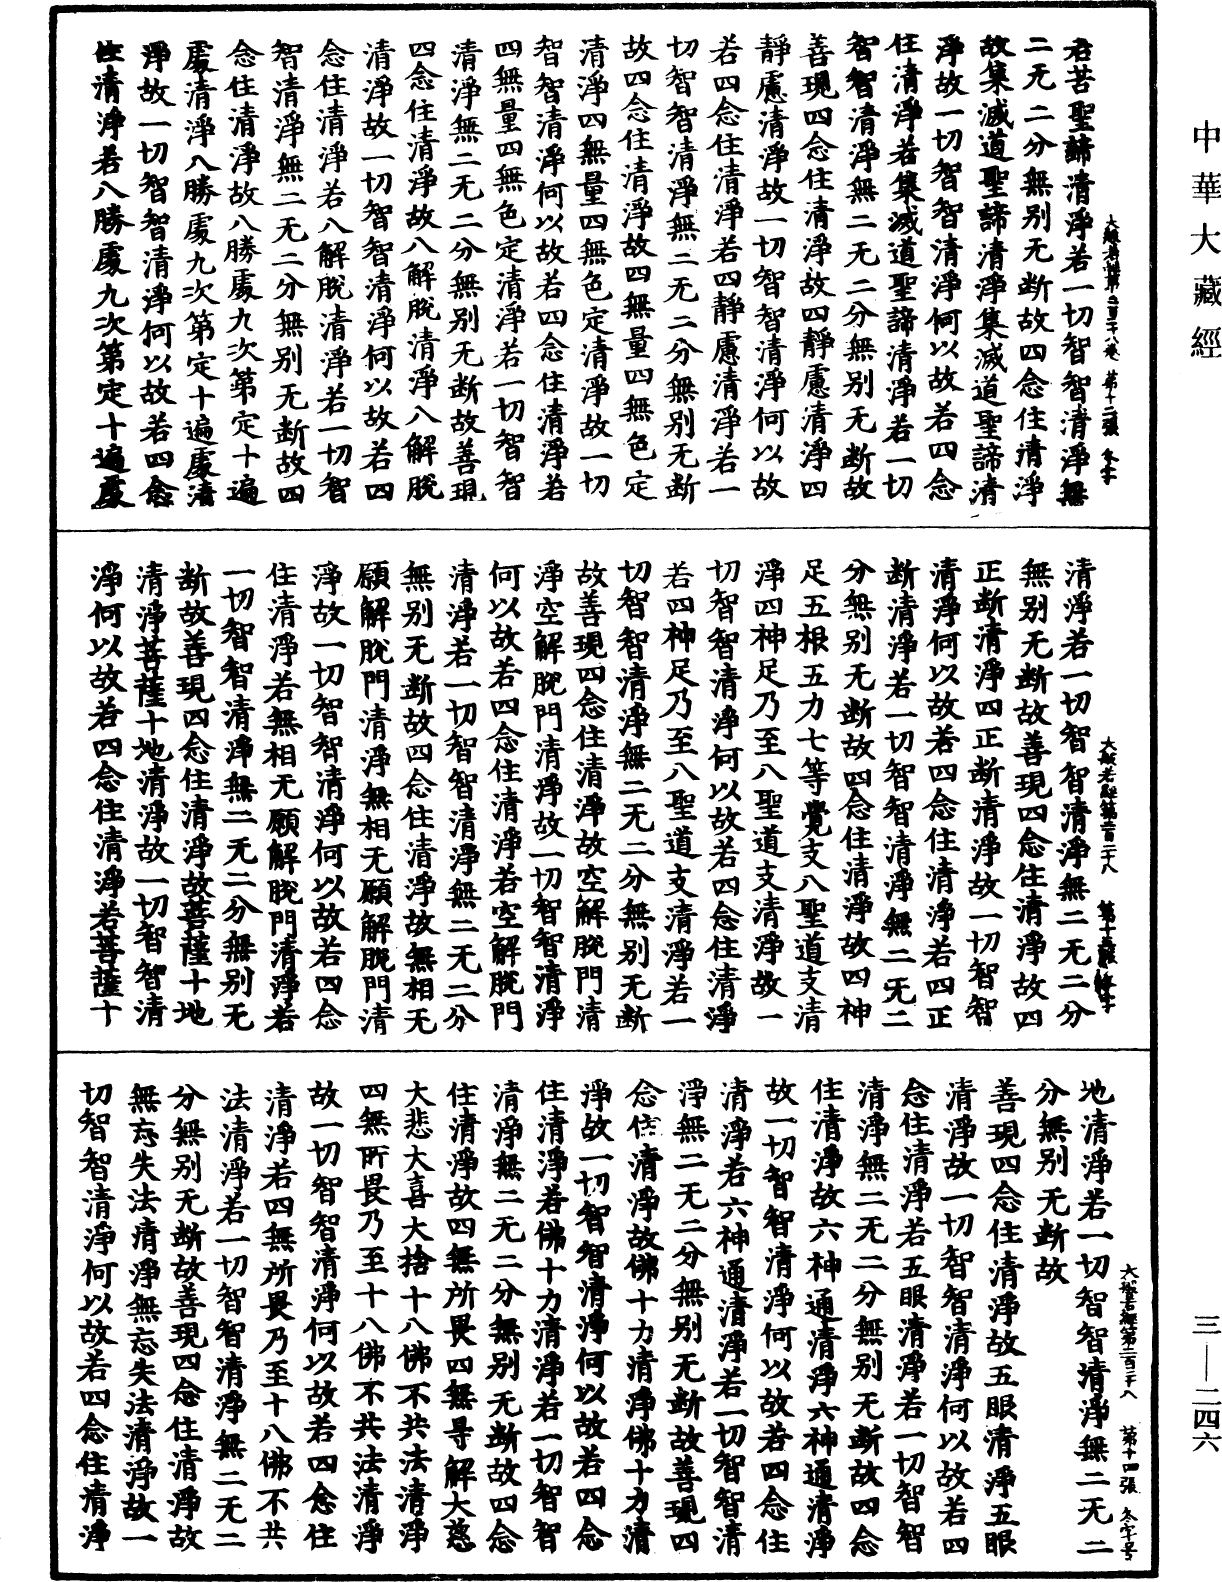 中華大藏經
若苦聖諦清淨若一切智智清淨無
二无二分無别无断故四念住清淨
故集滅道聖諦清淨集滅道聖諦清
淨故一切智智清淨何以故若四念
住清淨若集滅道聖諦清淨若一切
智智清淨無二无二分無别无断故
善現四念住清淨故四靜慮清淨四
靜慮清淨故一切智智清淨何以故
若四念住清淨若四靜慮清淨若一
切智智清淨無二无二分無别无断
故四念住清淨故四無量四無色定
清淨四無量四無色定清淨故一切
智智清淨何以故若四念住清淨若
四無量四無色定清淨若一切智智
清淨無二无二分無别无断故善現
四念住清淨故八解脫清淨八解脫
清淨故一切智智清淨何以故若四
念住清淨若八解脫清淨若一切智
智清淨無二无二分無别无断故四
念住清淨故八勝處九次第定十遍
處清淨八勝處九次第定十遍處清
淨故一切智智清淨何以故若四念
住清淨若八勝處九次第定十遍處
大般若經第二百二十八卷 第十二張 冬字
清淨若一切智智清淨無二无二分
無别无断故善現四念住清淨故四
正断清淨四正断清淨故一切智智
清淨何以故若四念住清淨若四正
断清淨若一切智智清淨無二无二
分無别无断故四念住清淨故四神
足五根五力七等覺支八聖道支清
淨四神足乃至八聖道支清淨故一
切智智清淨何以故若四念住清淨
若四神足乃至八聖道支清淨若一
切智智清淨無二无二分無别无断
故善現四念住清淨故空解脫門清
淨空解脫門清淨故一切智智清淨
何以故若四念住清淨若空解脫門
清淨若一切智智清淨無二无二分
無别无断故四念住清淨故無相无
願解脫門清淨無相无願解脫門清
淨故一切智智清淨何以故若四念
住清淨若無相无願解脫門清淨若
一切智智清淨無二无二分無别无
断故善現四念住清淨故菩薩十地
清淨菩薩十地清淨故一切智智清
淨何以故若四念住清淨若菩薩十
大般若經第二百二十八 第十三張 冬字
地清淨若一切智智清淨無二无二
分無别无断故
善現四念住清淨故五眼清淨五眼
清淨故一切智智清淨何以故若四
念住清淨若五眼清淨若一切智智
清淨無二无二分無别无断故四念
住清淨故六神通清淨六神通清淨
故一切智智清淨何以故若四念住
清淨若六神通清淨若一切智智清
淨無二无二分無别无断故善現四
念住清淨故佛十力清淨佛十力清
淨故一切智智清淨何以故若四念
住清淨若佛十力清淨若一切智智
清淨無二无二分無别无断故四念
住清淨故四無所畏四無㝵解大慈
大悲大喜大捨十八佛不共法清淨
四無所畏乃至十八佛不共法清淨
故一切智智清淨何以故若四念住
清淨若四無所畏乃至十八佛不共
法清淨若一切智智清淨無二无二
分無别无断故善現四念住清淨故
無忘失法清淨無忘失法清淨故一
切智智清淨何以故若四念住清淨
大般若經第二百二十八 第十四張 冬字号
三—二四六